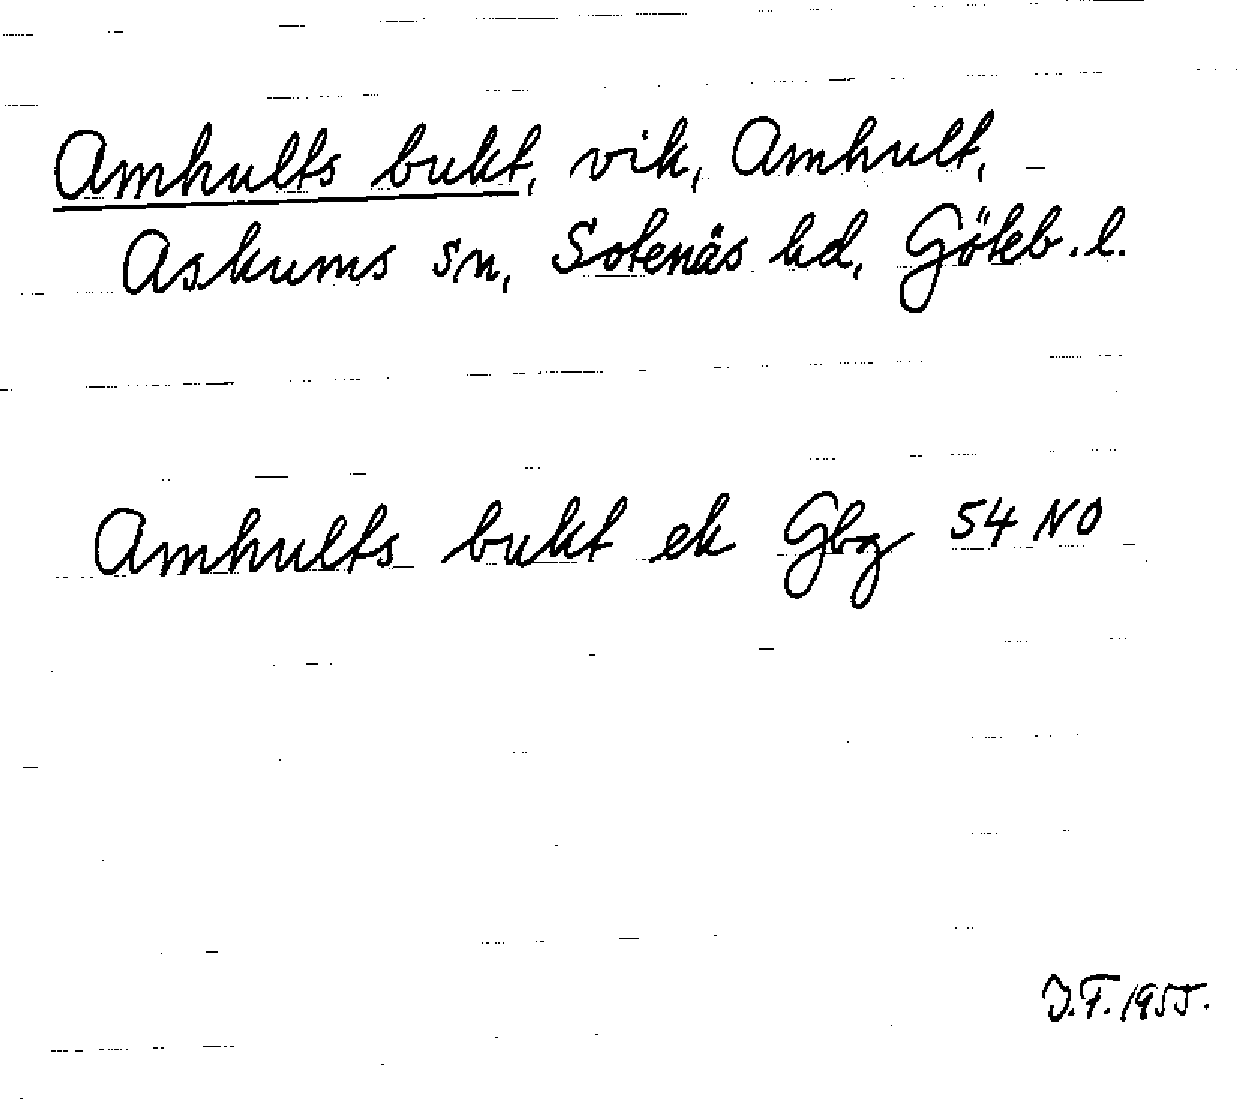 Amhults bukt, vik, Amhult,
Askums sn, Sotenäs hd, Göteb. l.
Amhults bukt ek Gbg 54 NO
J.F. 1955.